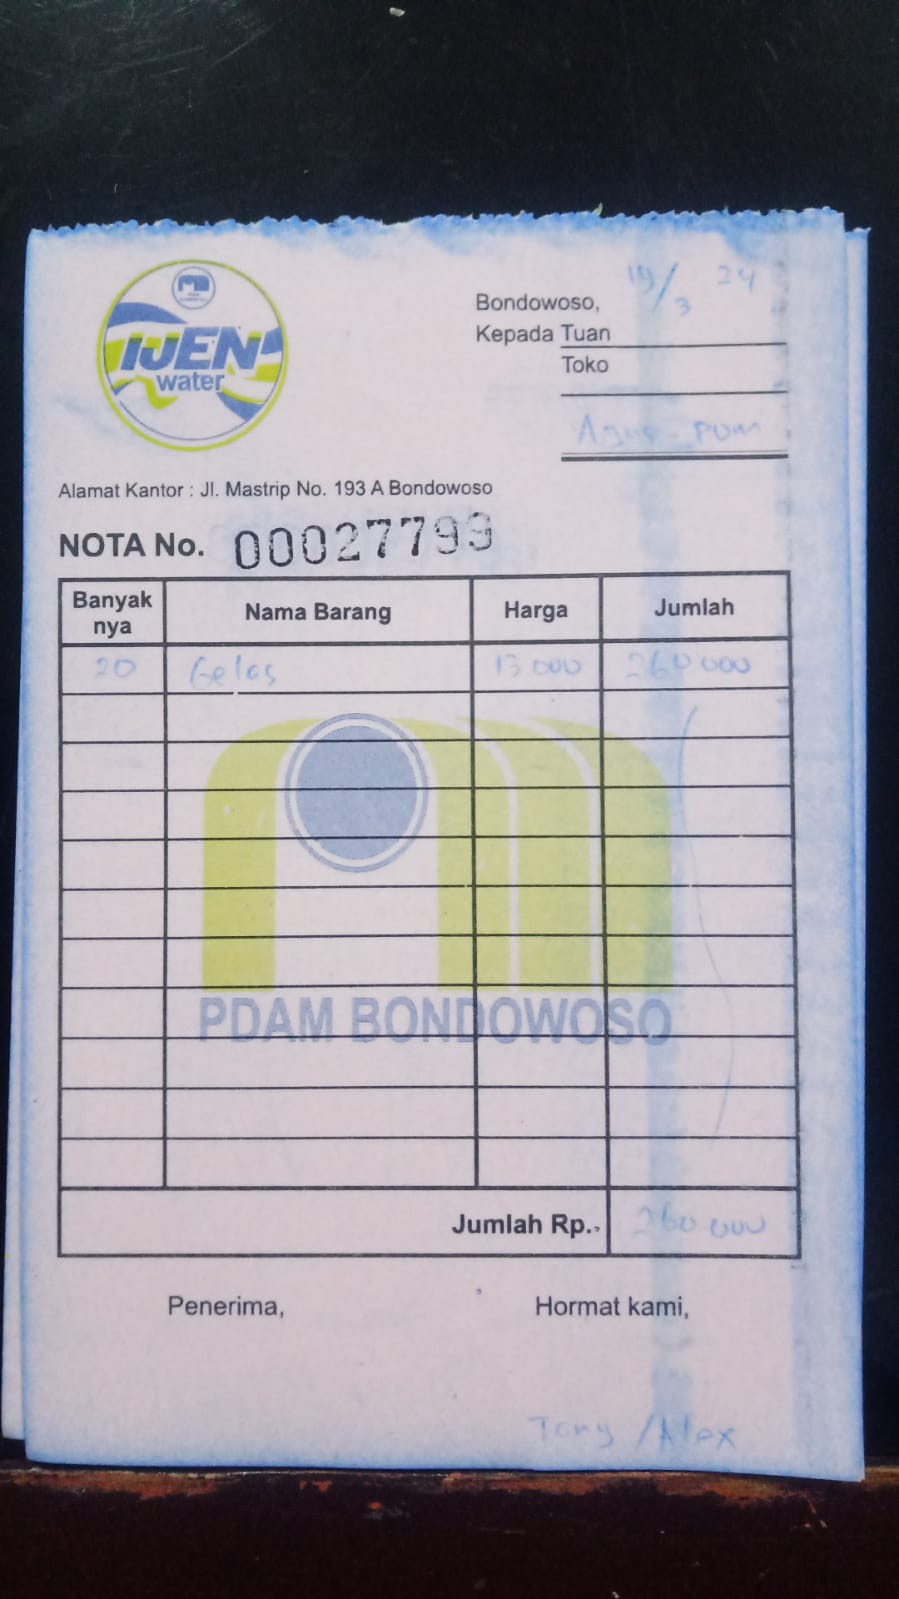 IJEN
water
Bondowoso, 19/3 24
Kepada Tuan
Toko
Agus - PDM
Alamat Kantor : Jl. Mastrip No. 193 A Bondowoso
NOTA No. 00027799
Banyak nya Nama Barang Harga Jumlah
20 Gelas 13 000 260 000
PDAM BONDOWOSO
Jumlah Rp. 260 000
Penerima, Hormat kami,
Tony / Alex